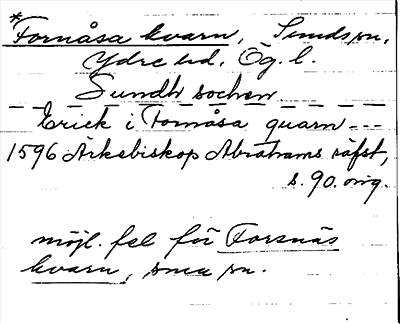 *Fornåsa kvarn, Sunds sn,
Ydre hd, Ög. l.
Sundh sochen
Erick i Fornåsa quarn ---
1596 Ärkebiskop Abrahams räfst,
s. 90. orig.
möjl. fel för Forsnäs
kvarn, sma sn.